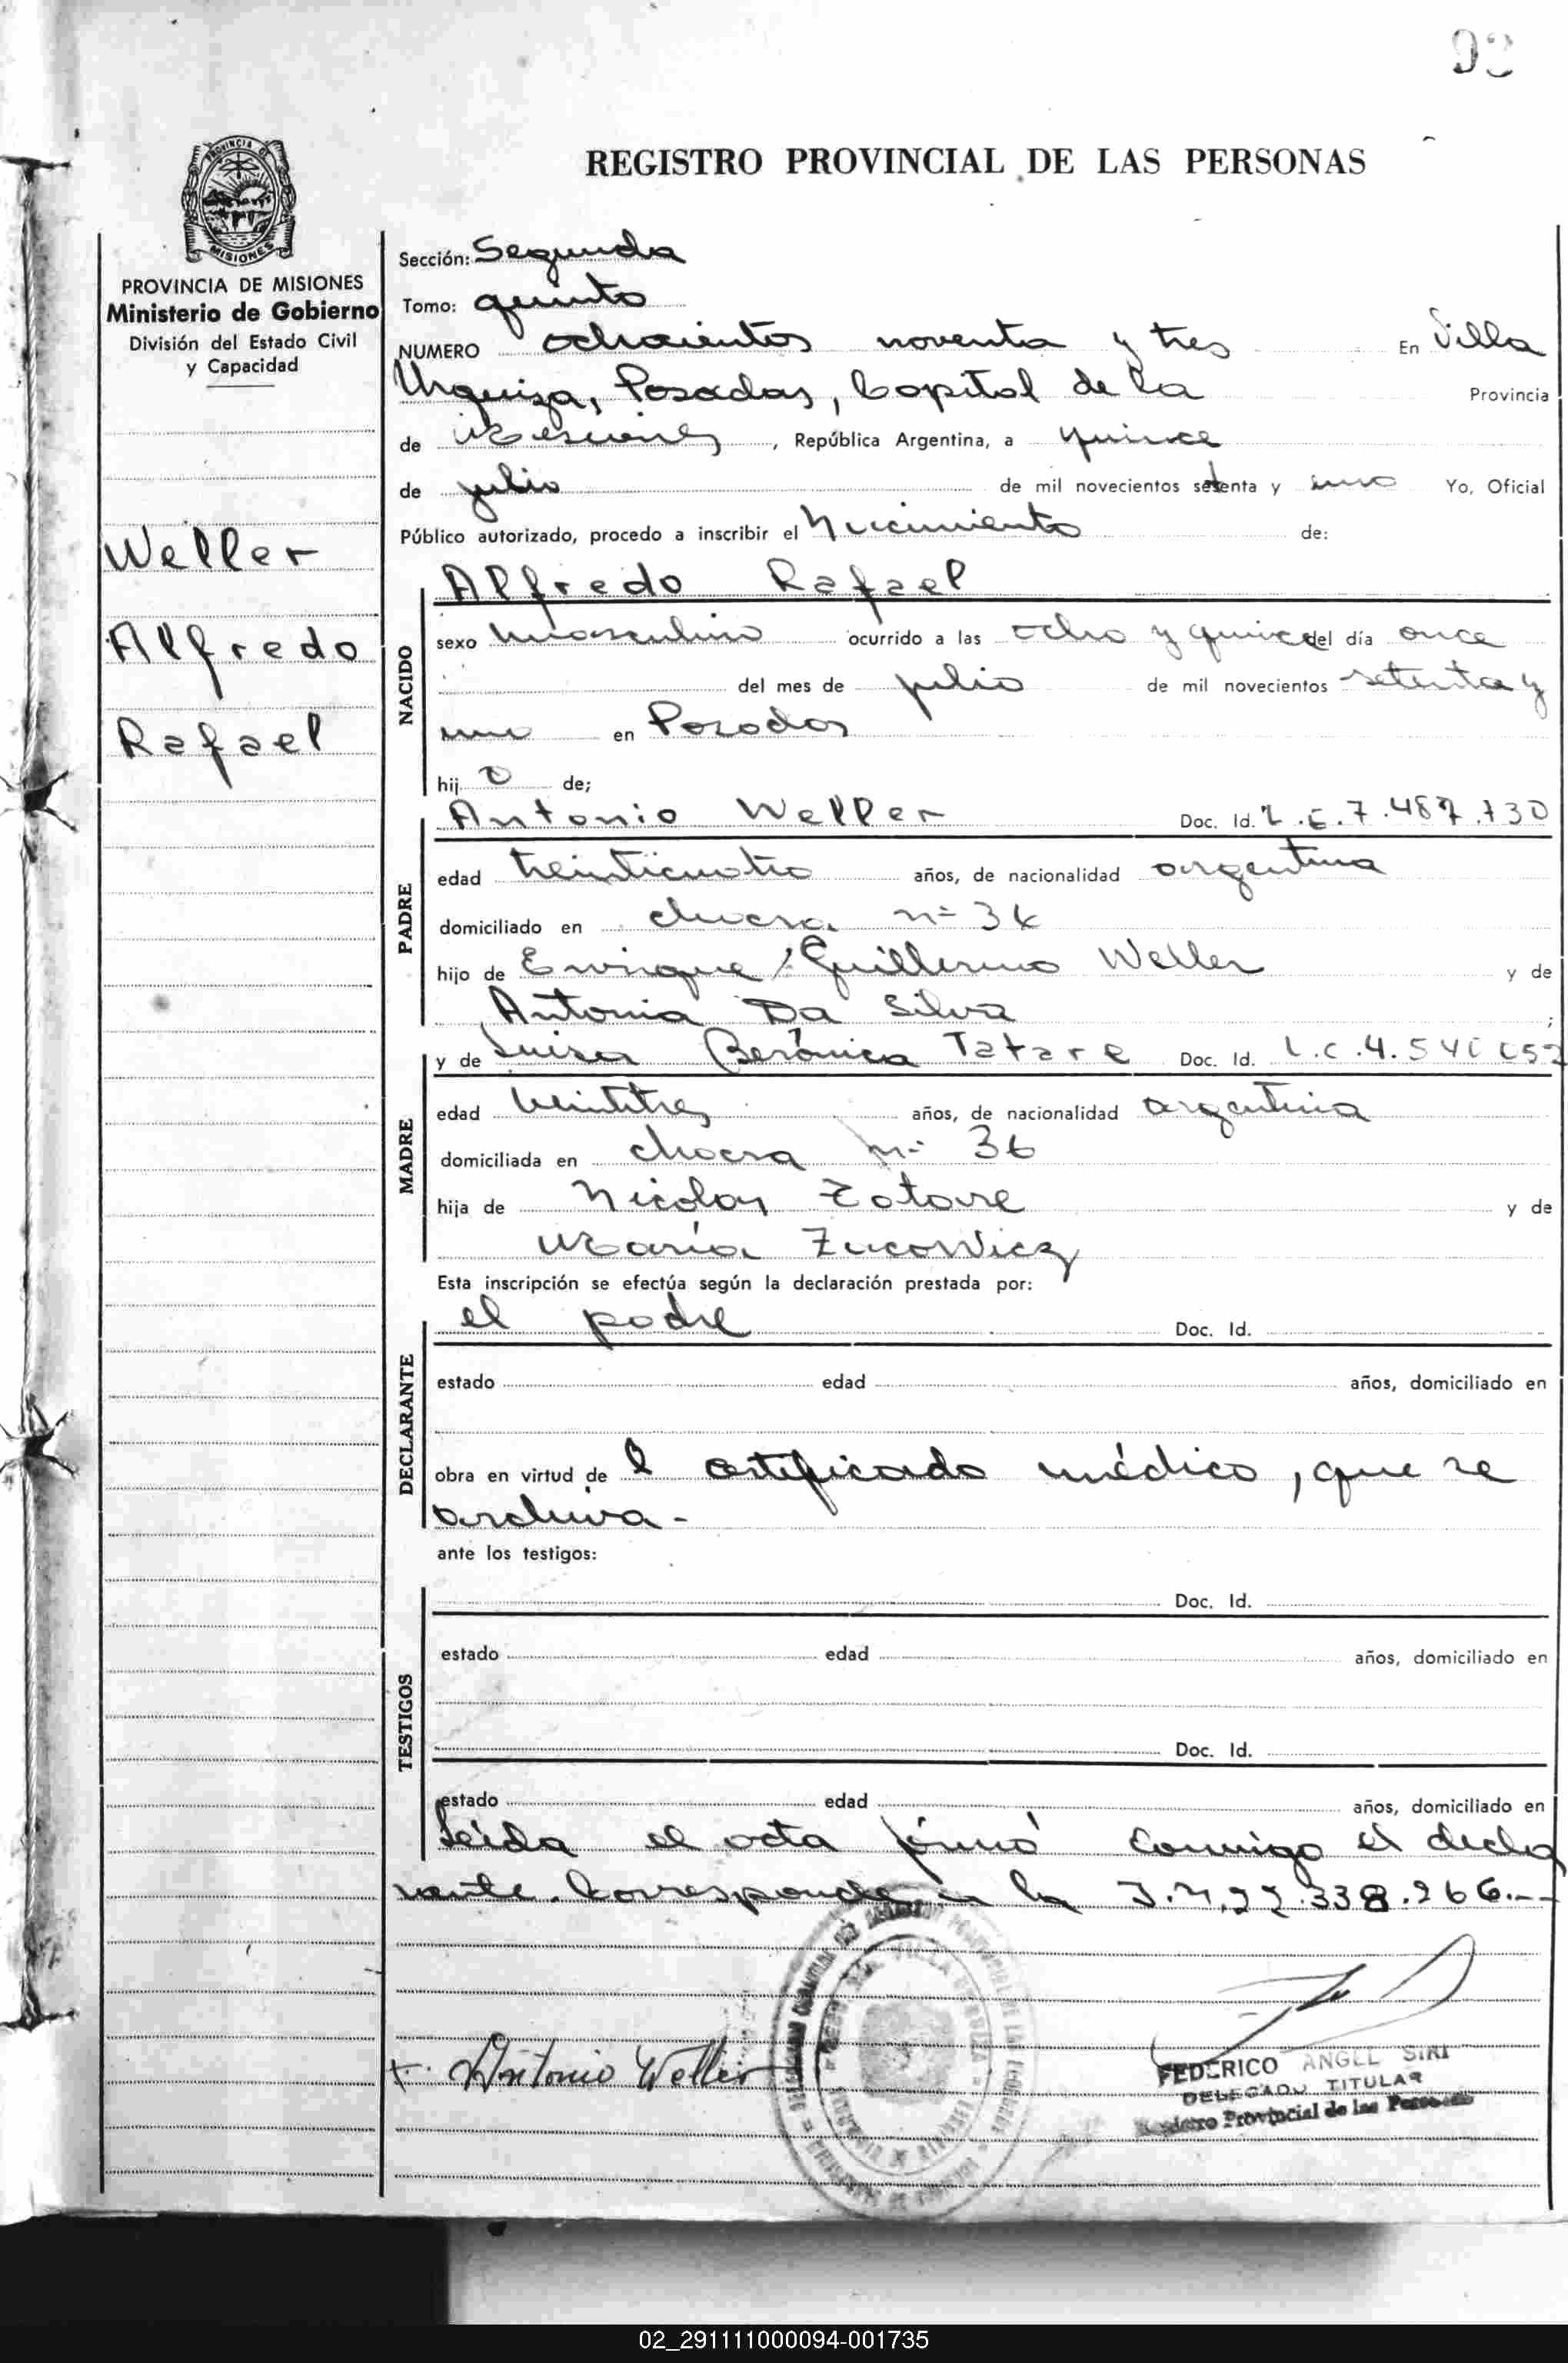 REGISTRO PROVINCIAL DE LAS PERSONAS
PROVINCIA DE
MISIONES
PROVINCIA DE MISIONES
Ministerio de Gobierno
División del Estado Civil
y Capacidad
Weller
Alfredo
Rafael
Sección: Segunda
Tomo: quinto
NUMERO ochocientos noventa y tres En Villa
Urquiza, Posadas, Capital de la Provincia
de Misiones, República Argentina, a quince
de julio de mil novecientos setenta y uno Yo, Oficial
Público autorizado, procedo a inscribir el Nacimiento de:
NACIDO
Alfredo Rafael
sexo masculino ocurrido a las ocho y quince del día once
del mes de julio de mil novecientos setenta y
uno en Posadas
hijo de;
PADRE
Antonio Weller Doc. Id. L.E.7.487.730
edad treinticuatro años, de nacionalidad argentina
domiciliado en chacra nº 36
hijo de Enrique Guillermo Weller y de
Antonia Da Silva ;
MADRE
y de Luisa Berónica Tatare Doc. Id. L.C.4.540
edad veintitres años, de nacionalidad argentina
domiciliada en chacra nº 36
hija de Nicolas Tatare y de
María Zucowicz
Esta inscripción se efectúa según la declaración prestada por:
DECLARANTE
el padre Doc. Id.
estado edad años, domiciliado en
obra en virtud de l certificado médico, que se
archiva.-
ante los testigos:
TESTIGOS
Doc. Id.
estado edad años, domiciliado en
Doc. Id.
estado edad años, domiciliado en
Leída el acta firmó conmigo el decla
rante. Corresponde la 22.338.266.--
Antonio Weller
FEDERICO ANGEL SIRI
DELEGADO TITULAR
Registro Provincial de las Personas
02_291111000094-001735